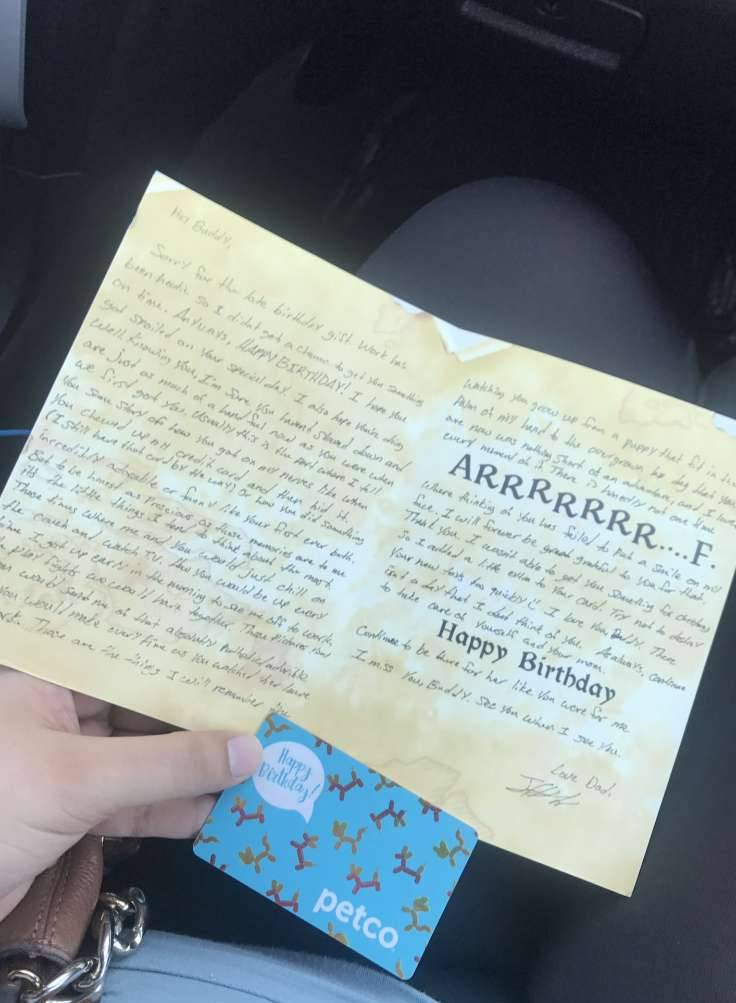 Hey Buddy,
Sorry for the late birthday gift. Work has
been hectic so I didnt get a chance to get you something
on time. Anyways, HAPPY BIRTHDAY! I hope you
got spoiled on your special day. I also hope
Well knowing you, I'm sure you havent slowed down and
are just as much of a handful now as you were when
we first got you. Usually this is the part where I tell
you some story of how you got on my nerves like when
you chewed up my credit card and then hid it.
(I still have that card by the way) or how you did something
incredibly adorable or funny like your first ever bath.
But to be honest as precious as those memories are to me
its the little things I tend to think about the most.
Those times where me and you would just chill on
the couch and watch TV, how you would be up every
time I got up early in the morning to see me off to work,
fights we would have together. Those pictures
mom would send me of that absolutely
you would make every time as you watched her leave
Those are the things I will remember
Watching you grow up from a puppy that fit in the
palm of my hand to the overgrown dog that you
are now was nothing short of an adventure, and I loved
every minute of it. There is honestly not one time
ARRRRRRR....F.
Where thinking of you has failed to put a smile on my
face. I will forever be grateful to you for that.
Thank you. I wasnt able to get you something for christmas
So I added a little extra to your card. Try not to destroy
your new toys too quickly! I love you Buddy. There
isnt a day that I dont think of you. Anyways, continue
to take care of yourself and your mom.
Happy Birthday
Continue to be there for her like you were for me
I miss you, Buddy. See you when I see you.
Love Dad,
Happy
Birthday!
petco